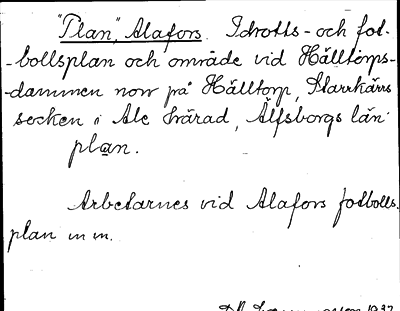 "Plan", Alafors. Idrotts- och fot-
-bollsplan och område vid Hälltorps-
-dammen norr på Hälltorp, Starrkärrs
socken i Ale härad, Älfsborgs län
plan.
Arbetarnes vid Alafors fotbolls-
plan m m.
1937